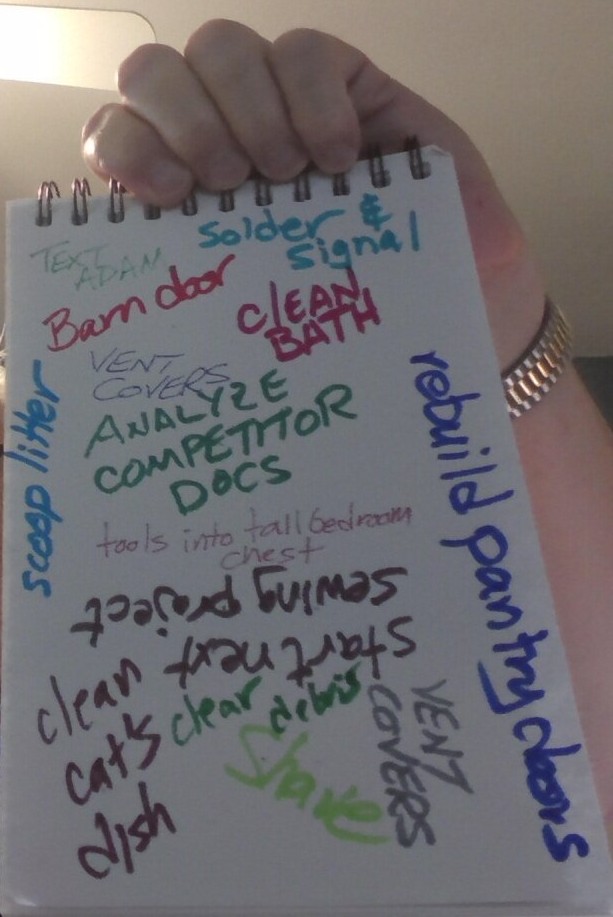 solder &
signal
TEXT
ADAM
Barn door
CLEAN
BATH
VENT
COVERS
ANALYZE
COMPETITOR
DOCS
scoop litter
rebuild pantry doors
tools into tall bedroom
chest
start next
sewing project
clean
cat's
dish
clear debris
Shave
VENT
COVERS